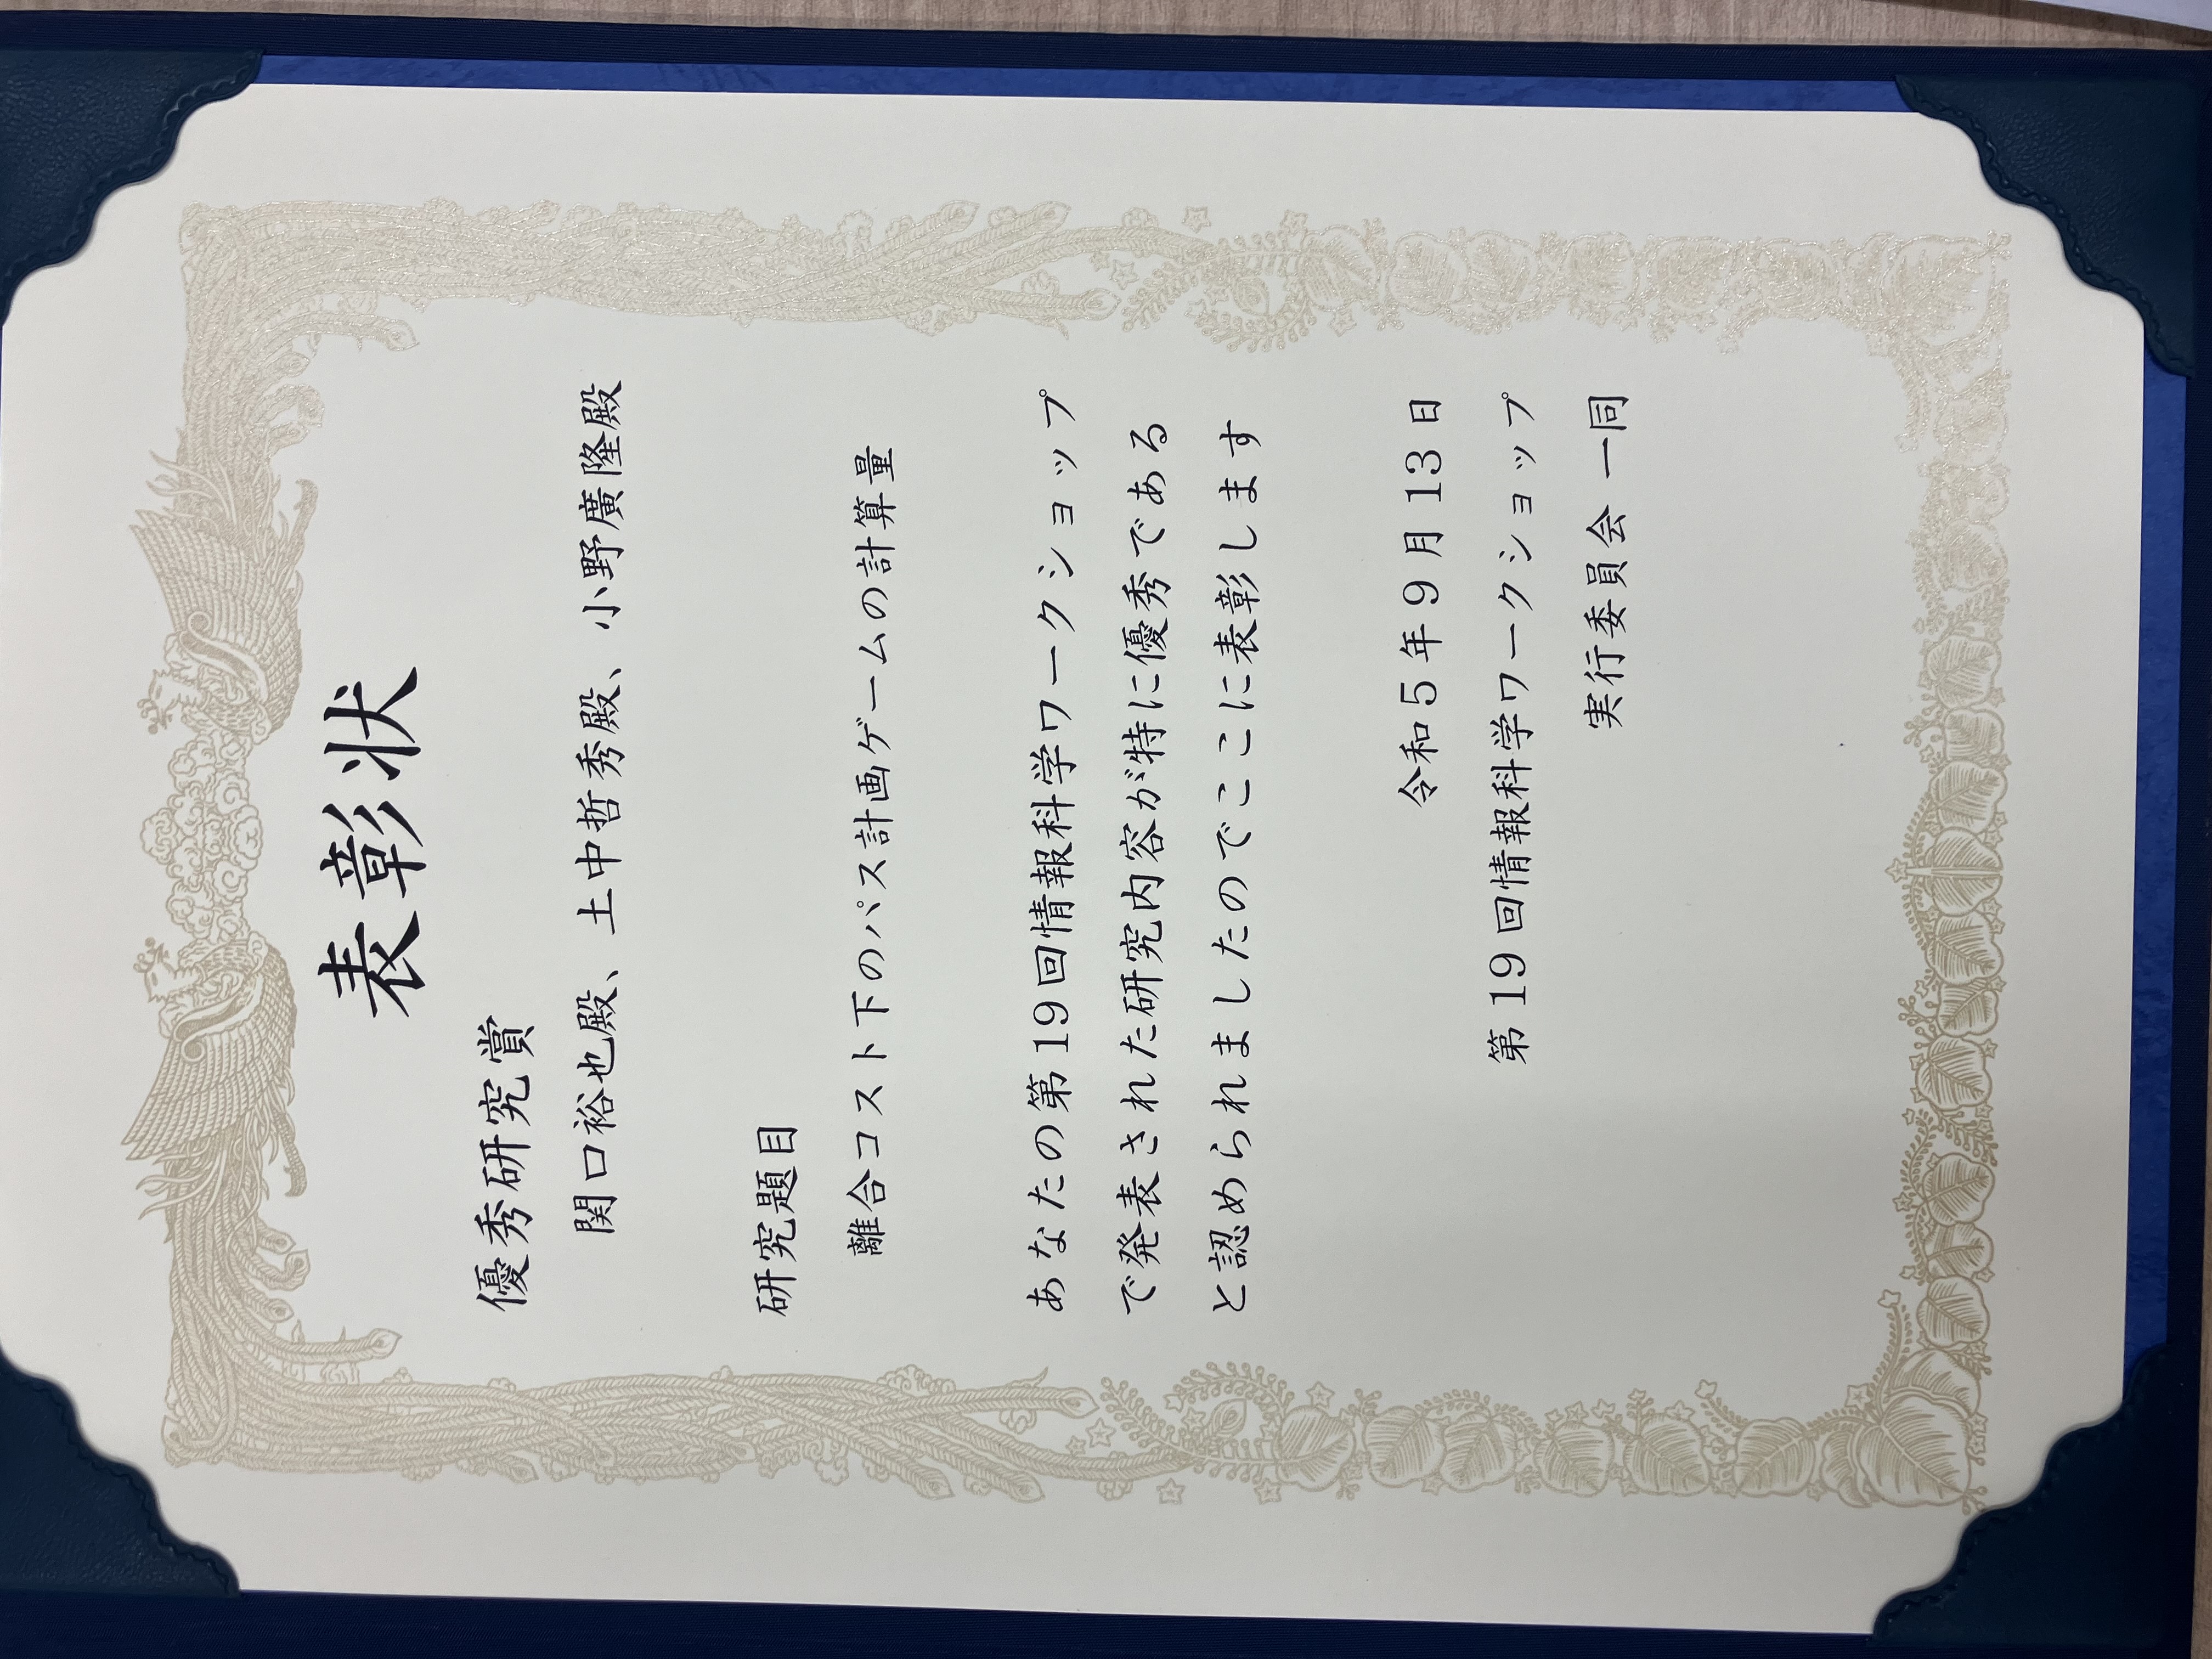 表彰状
優秀研究賞
関口裕也殿、土中哲秀殿、小野廣隆殿
研究題目
離合コスト下のパス計画ゲームの計算量
あなたの第19回情報科学ワークショップ
で発表された研究内容が特に優秀である
と認められましたのでここに表彰します
令和5年9月13日
第19回情報科学ワークショップ
実行委員会 一同